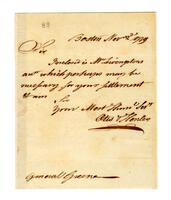 89
Boston Nov 2d 1779
Sir
Inclosed is Mr Livingstons
acct which perhaps may be
necessary for your settlement
I am
Sir
Your Most Hum Ser
Otis & Henley
General Greene